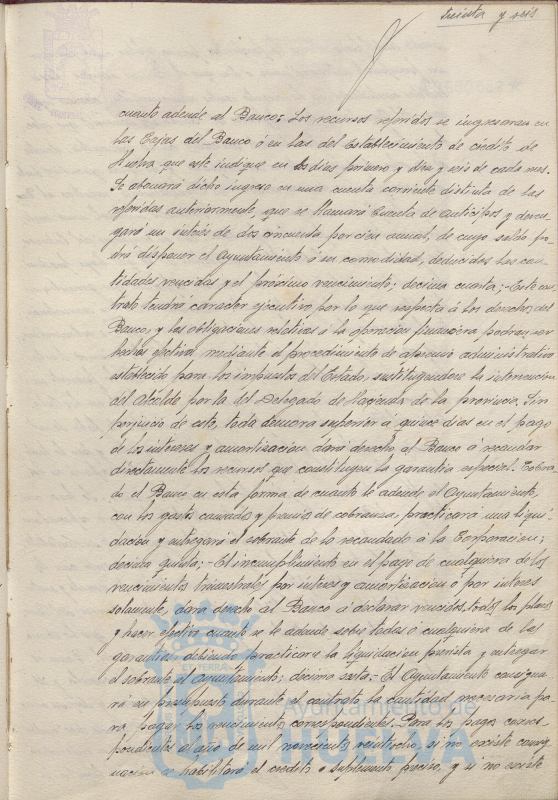 Treinta y seis
cuanto adeude al Banco: Los recursos referidos se ingresaran en
las Cajas del Banco ó en las del Establecimiento de credito de
Huelva que este indique en los dias primero y diez y seis de cada mes.
Se abonará dicho ingreso en una cuenta corriente distinta de las
referidas anteriormente, que se llamará Cuenta de Anticipos y deven-
gará un interés de dos cincuenta por cien anual, de cuyo saldo po-
drá disponer el Ayuntamiento á su comodidad, deducidas las can-
tidades vencidas y el próximo vencimiento; decima cuarta; Este con-
trato tendrá caracter ejecutivo por lo que respecta á los derechos del
Banco, y las obligaciones relativas á la operacion financiera podran ser
hechas efectivas mediante el procedimiento de apremio administrativo
establecido para los impuestos del Estado, sustituyendose la intervencion
del Alcalde por la del Delegado de Hacienda de la provincia. Sin
perjuicio de esto, toda demora superior á quince dias en el pago
de los intereses y amortizacion dará derecho al Banco á recaudar
directamente los recursos que constituyen la garantia especial. Cobra-
do el Banco en esta forma de cuanto le adeude el Ayuntamiento,
con los gastos causados y premio de cobranza, practicará una liqui-
dacion y entregará el sobrante de lo recaudado á la Corporacion;
decima quinta; El incumplimiento en el pago de cualquiera de los
vencimientos trimestrales por interes y amortizacion ó por interes
solamente, dará derecho al Banco á declarar vencidos todos los plazos
y hacer efectivo cuanto se le adeude sobre todas ó cualquiera de las
garantias, debiendo practicarse la liquidacion prevista y entregar
el sobrante al Ayuntamiento; décimo sexta; El Ayuntamiento consigna-
rá en presupuesto durante el contrato la cantidad necesaria pa-
ra pagar los vencimientos correspondientes. Para los pagos corres-
pondientes al año de mil novecientos veintiocho, si no existe consig-
nacion se habilitará el credito ó suplemento preciso, y si no existe
Ayuntamiento de
HUELVA